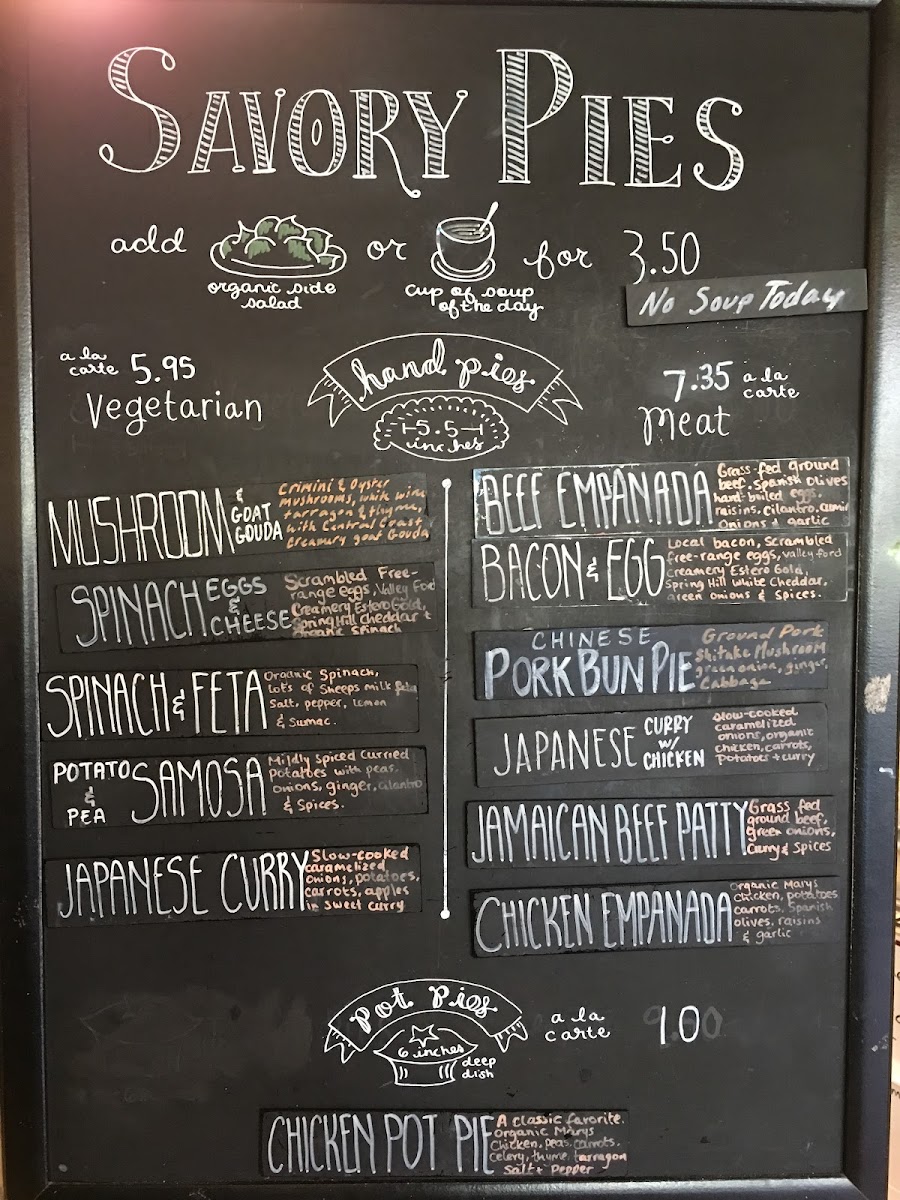 SAVORY PIES
add organic side salad or cup of soup of the day for 3.50
No Soup Today
a la carte 5.95
Vegetarian
hand pies
5.5
inches
7.35 a la carte
Meat
MUSHROOM & GOAT GOUDA
Crimini & Oyster
mushrooms, white wine
tarragon & thyme,
with Central Coast
Creamery goat Gouda
SPINACH EGGS & CHEESE
Scrambled Free-
range eggs, Valley Ford
Creamery Estero Gold,
Spring Hill Cheddar +
Organic Spinach
SPINACH & FETA
Organic Spinach,
Lots of Sheeps milk feta
Salt, pepper, lemon
& Sumac.
POTATO & PEA SAMOSA
Mildly spiced curried
potatoes with peas,
onions, ginger, cilantro
& Spices.
JAPANESE CURRY
Slow-cooked
caramelized
onions, potatoes,
carrots, apples
in sweet curry
BEEF EMPANADA
Grass-fed ground
beef, Spanish olives
hard-boiled eggs,
raisins, cilantro, cumin
Onions & garlic
BACON & EGG
Local bacon, Scrambled
free-range eggs, Valley ford
creamery Estero Gold,
Spring Hill White Cheddar,
green onions & Spices.
CHINESE
PORK BUN PIE
Ground Pork
Shitake Mushroom
green onion, ginger,
Cabbage
JAPANESE CURRY W/ CHICKEN
Slow-cooked
caramelized
onions, organic
chicken, carrots,
potatoes + curry
JAMAICAN BEEF PATTY
Grass fed
ground beef,
green onions,
Curry & Spices
CHICKEN EMPANADA
Organic Marys
chicken, potatoes
carrots, Spanish
olives, raisins
& garlic
pot pies
6 inches
deep
dish
a la carte 10
CHICKEN POT PIE
A classic favorite.
Organic Marys
Chicken, peas, carrots,
celery, thyme, tarragon
Salt + Pepper